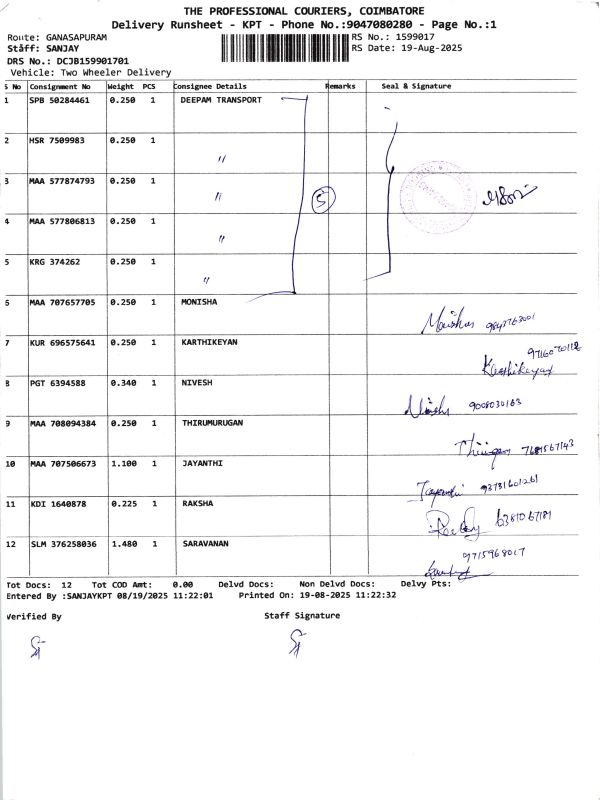 THE PROFESSIONAL COURIERS, COIMBATORE
Delivery Runsheet - KPT - Phone No.:9047080280 - Page No.:1
Route: GANASAPURAM RS No.: 1599017
Staff: SANJAY RS Date: 19-Aug-2025
DRS No.: DCJB159901701
Vehicle: Two Wheeler Delivery
S No Consignment No Weight PCS Consignee Details Remarks Seal & Signature
1 SPB 50284461 0.250 1 DEEPAM TRANSPORT
2 HSR 7509983 0.250 1 "
3 MAA 577874793 0.250 1 " 5
4 MAA 577806813 0.250 1 "
5 KRG 374262 0.250 1 "
6 MAA 707657705 0.250 1 MONISHA
7 KUR 696575641 0.250 1 KARTHIKEYAN Karthikeyan
8 PGT 6394588 0.340 1 NIVESH 9008030163
9 MAA 708094384 0.250 1 THIRUMURUGAN
10 MAA 707506673 1.100 1 JAYANTHI
11 KDI 1640878 0.225 1 RAKSHA 6381067181
12 SLM 376258036 1.480 1 SARAVANAN 9715968017
Tot Docs: 12 Tot COD Amt: 0.00 Delvd Docs: Non Delvd Docs: Delvy Pts:
Entered By :SANJAYKPT 08/19/2025 11:22:01 Printed On: 19-08-2025 11:22:32
Verified By Staff Signature